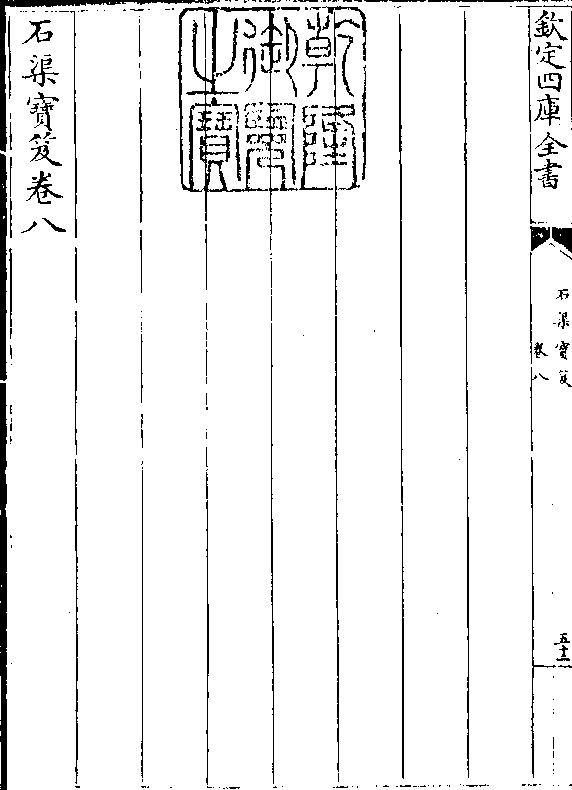 欽定四庫全書
石渠寶笈
卷八
五十二
乾隆
御覽
之寶
石渠寶笈卷八